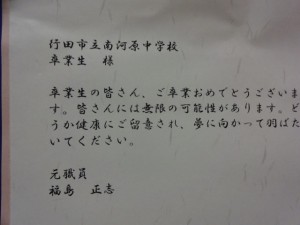 行田市立南河原中学校
卒業生　様
卒業生の皆さん、ご卒業おめでとうございま
す。皆さんには無限の可能性があります。ど
うか健康にご留意され、夢に向かって羽ばた
いてください。
元職員
福島　正志